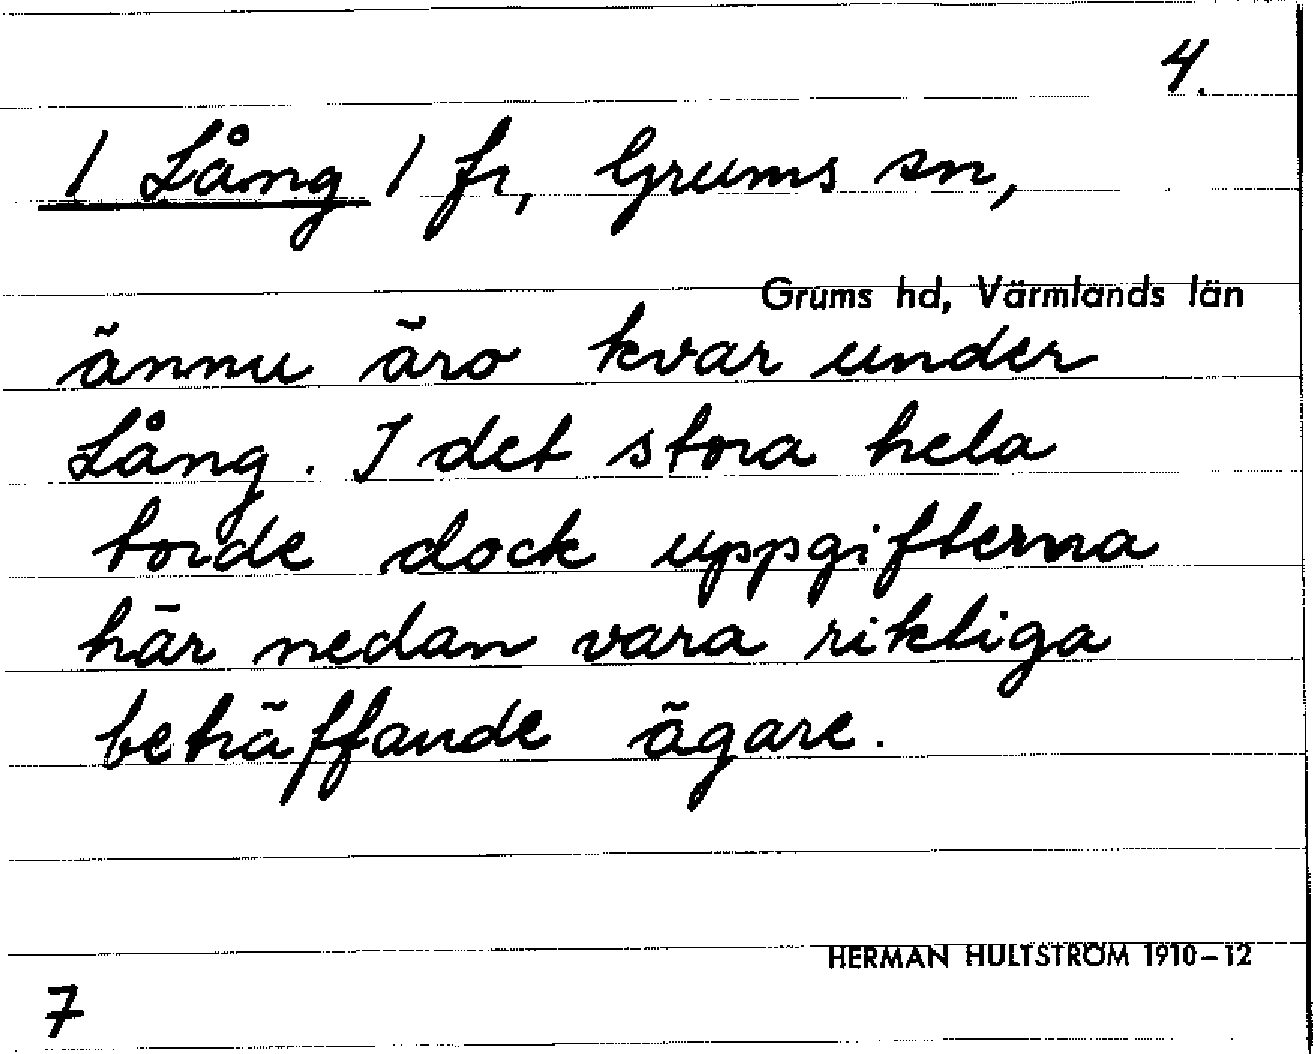 4.
/ Lång / fr, Grums sn,
Grums hd, Värmlands län
ännu äro kvar under
Lång. I det stora hela
torde dock uppgifterna
här nedan vara riktiga
beträffande ägare.
HERMAN HULTSTRÖM 1910–12
7